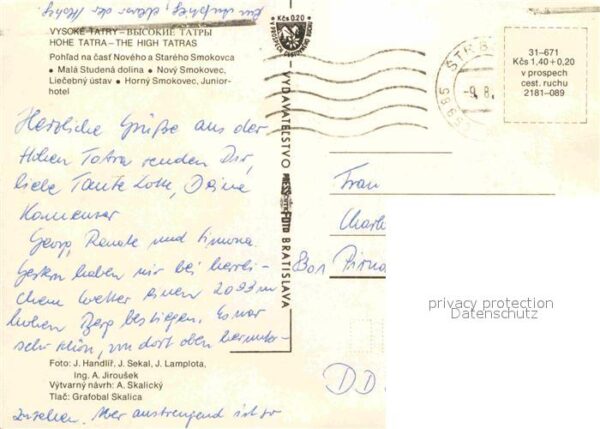 VYSOKÉ TATRY – ВЫСОКИЕ ТАТРЫ
HOHE TATRA – THE HIGH TATRAS
Pohľad na časť Nového a Starého Smokovca
• Malá Studená dolina • Nový Smokovec,
Liečebný ústav • Horný Smokovec, Junior-
hotel
Herzliche Grüße aus der
Hohen Tatra senden Dir,
liebe Tante Lotte, Deine
Georg, Renate und Simona.
Gestern haben wir bei herrli-
chem Wetter einen 2093 m
hohen Berg bestiegen. Es war
sehr schön, von dort oben herunter-
Foto: J. Handlíř, J. Sekal, J. Lamplota,
Ing. A. Jiroušek
Výtvarný návrh: A. Skalický
Tlač: Grafobal Skalica
zusehen. Aber anstrengend ist so
Kčs 0,20
VYDAVATEĽSTVO
BRATISLAVA
ŠTRB
9. 8.
31–671
Kčs 1,40 + 0,20
v prospech
cest. ruchu
2181–089
Frau
Charl
8301 Pirna
DD
privacy protection
Datenschutz